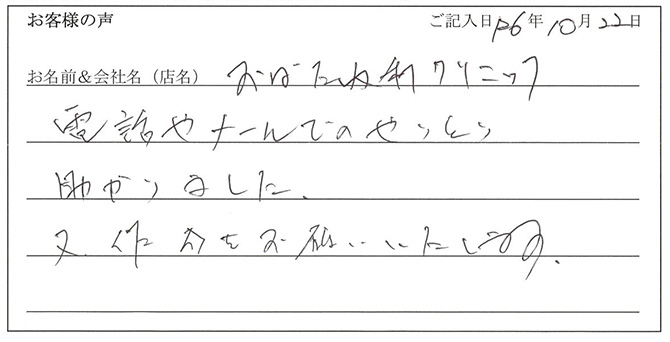 お客様の声 ご記入日 R6年10月22日
お名前&会社名(店名) おばた内科クリニック
電話やメールでのやりとり
助かりました。
又、作成をお願いいたします。